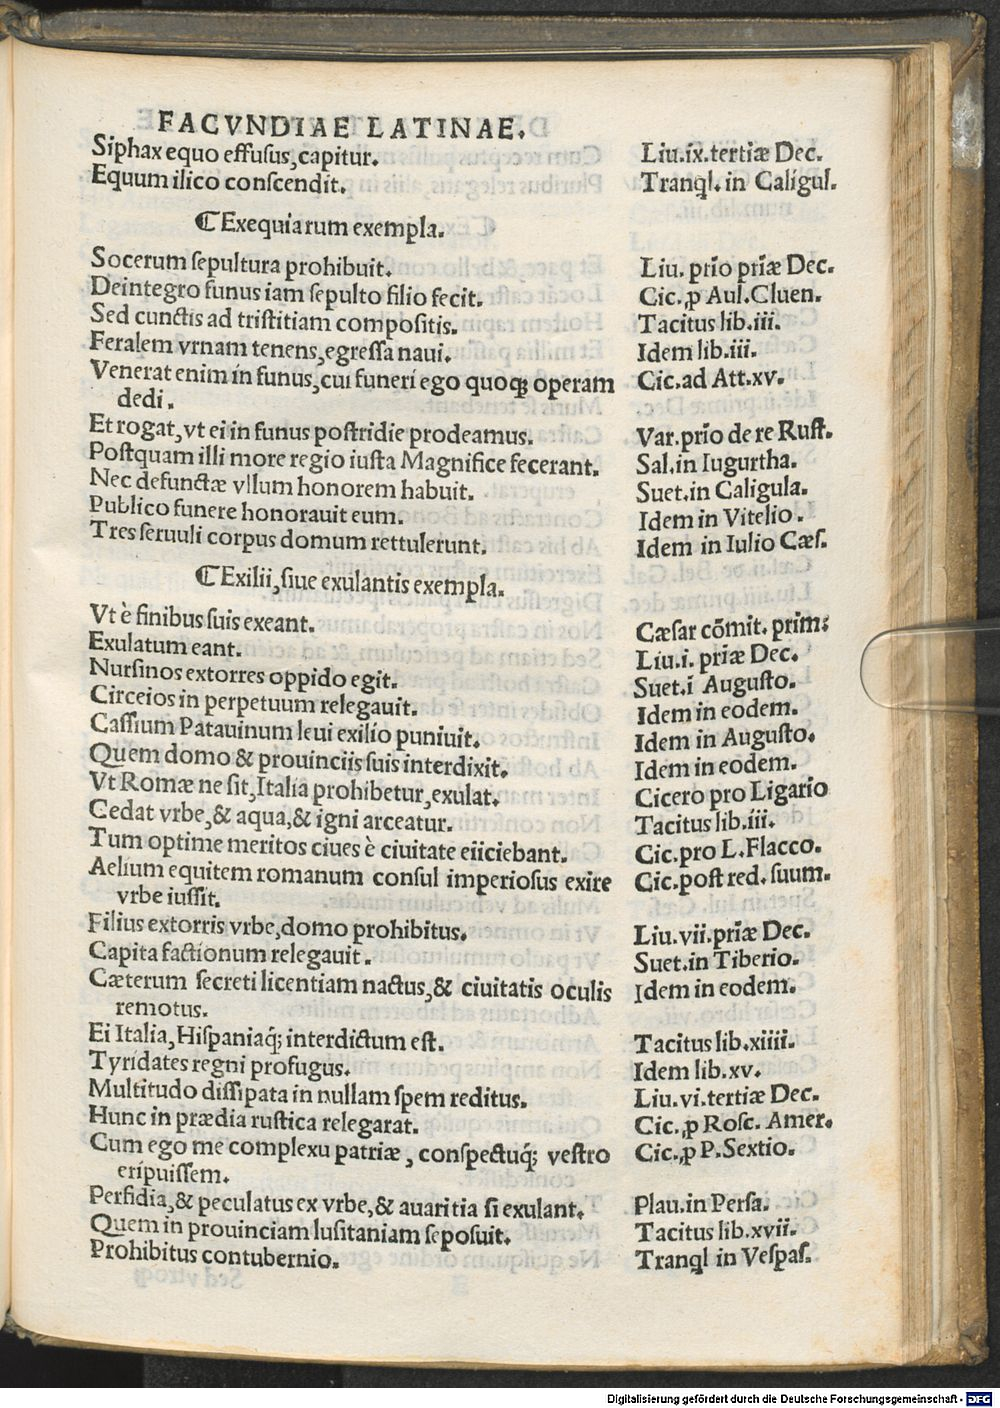 FACVNDIAE LATINAE.
Siphax equo effusus, capitur. Liu.ix.tertiæ Dec.
Equum ilico conscendit. Tranql. in Caligul.
⸿Exequiarum exempla.
Socerum sepultura prohibuit. Liu. prīo prīæ Dec.
Deintegro funus iam sepulto filio fecit. Cic.,p Aul.Cluen.
Sed cunctis ad tristitiam compositis. Tacitus lib.iii.
Feralem vrnam tenens, egressa naui. Idem lib.iii.
Venerat enim in funus, cui funeri ego quoqꝫ operam Cic.ad Att.xv.
dedi.
Et rogat, vt ei in funus postridie prodeamus. Var.prīo de re Rust.
Postquam illi more regio iusta Magnifice fecerant. Sal.in Iugurtha.
Nec defunctæ vllum honorem habuit. Suet.in Caligula.
Publico funere honorauit eum. Idem in Vitelio.
Tres seruuli corpus domum rettulerunt. Idem in Iulio Cæs.
⸿Exilii, siue exulantis exempla.
Vt è finibus suis exeant. Cæsar cōmit. prim;
Exulatum eant. Liu.i. priæ Dec.
Nursinos extorres oppido egit. Suet.ī Augusto.
Circeios in perpetuum relegauit. Idem in eodem.
Cassium Patauinum leui exilio puniuit. Idem in Augusto.
Quem domo & prouinciis suis interdixit. Idem in eodem.
Vt Romæ ne sit, Italia prohibetur, exulat. Cicero pro Ligario
Cedat vrbe, & aqua, & igni arceatur. Tacitus lib.iii.
Tum optime meritos ciues è ciuitate eiiciebant. Cic.pro L.Flacco.
Aelium equitem romanum consul imperiosus exire Cic.post red.suum.
vrbe iussit.
Filius extorris vrbe, domo prohibitus. Liu.vii.prīæ Dec.
Capita factionum relegauit. Suet.in Tiberio.
Cæterum secreti licentiam nactus, & ciuitatis oculis Idem in eodem.
remotus.
Ei Italia, Hispaniaq; interdictum est. Tacitus lib.xiiii.
Tyridates regni profugus. Idem lib.xv.
Multitudo dissipata in nullam spem reditus. Liu.vi.tertiæ Dec.
Hunc in prædia rustica relegarat. Cic.,p Rosc. Amer.
Cum ego me complexu patriæ, conspectuq́; vestro Cic.,p P.Sextio.
eripuissem.
Perfidia, & peculatus ex vrbe, & auaritia si exulant. Plau.in Persa.
Quem in prouinciam lusitaniam seposuit. Tacitus lib.xvii.
Prohibitus contubernio. Tranql in Vespas.
Digitalisierung gefördert durch die Deutsche Forschungsgemeinschaft - DFG